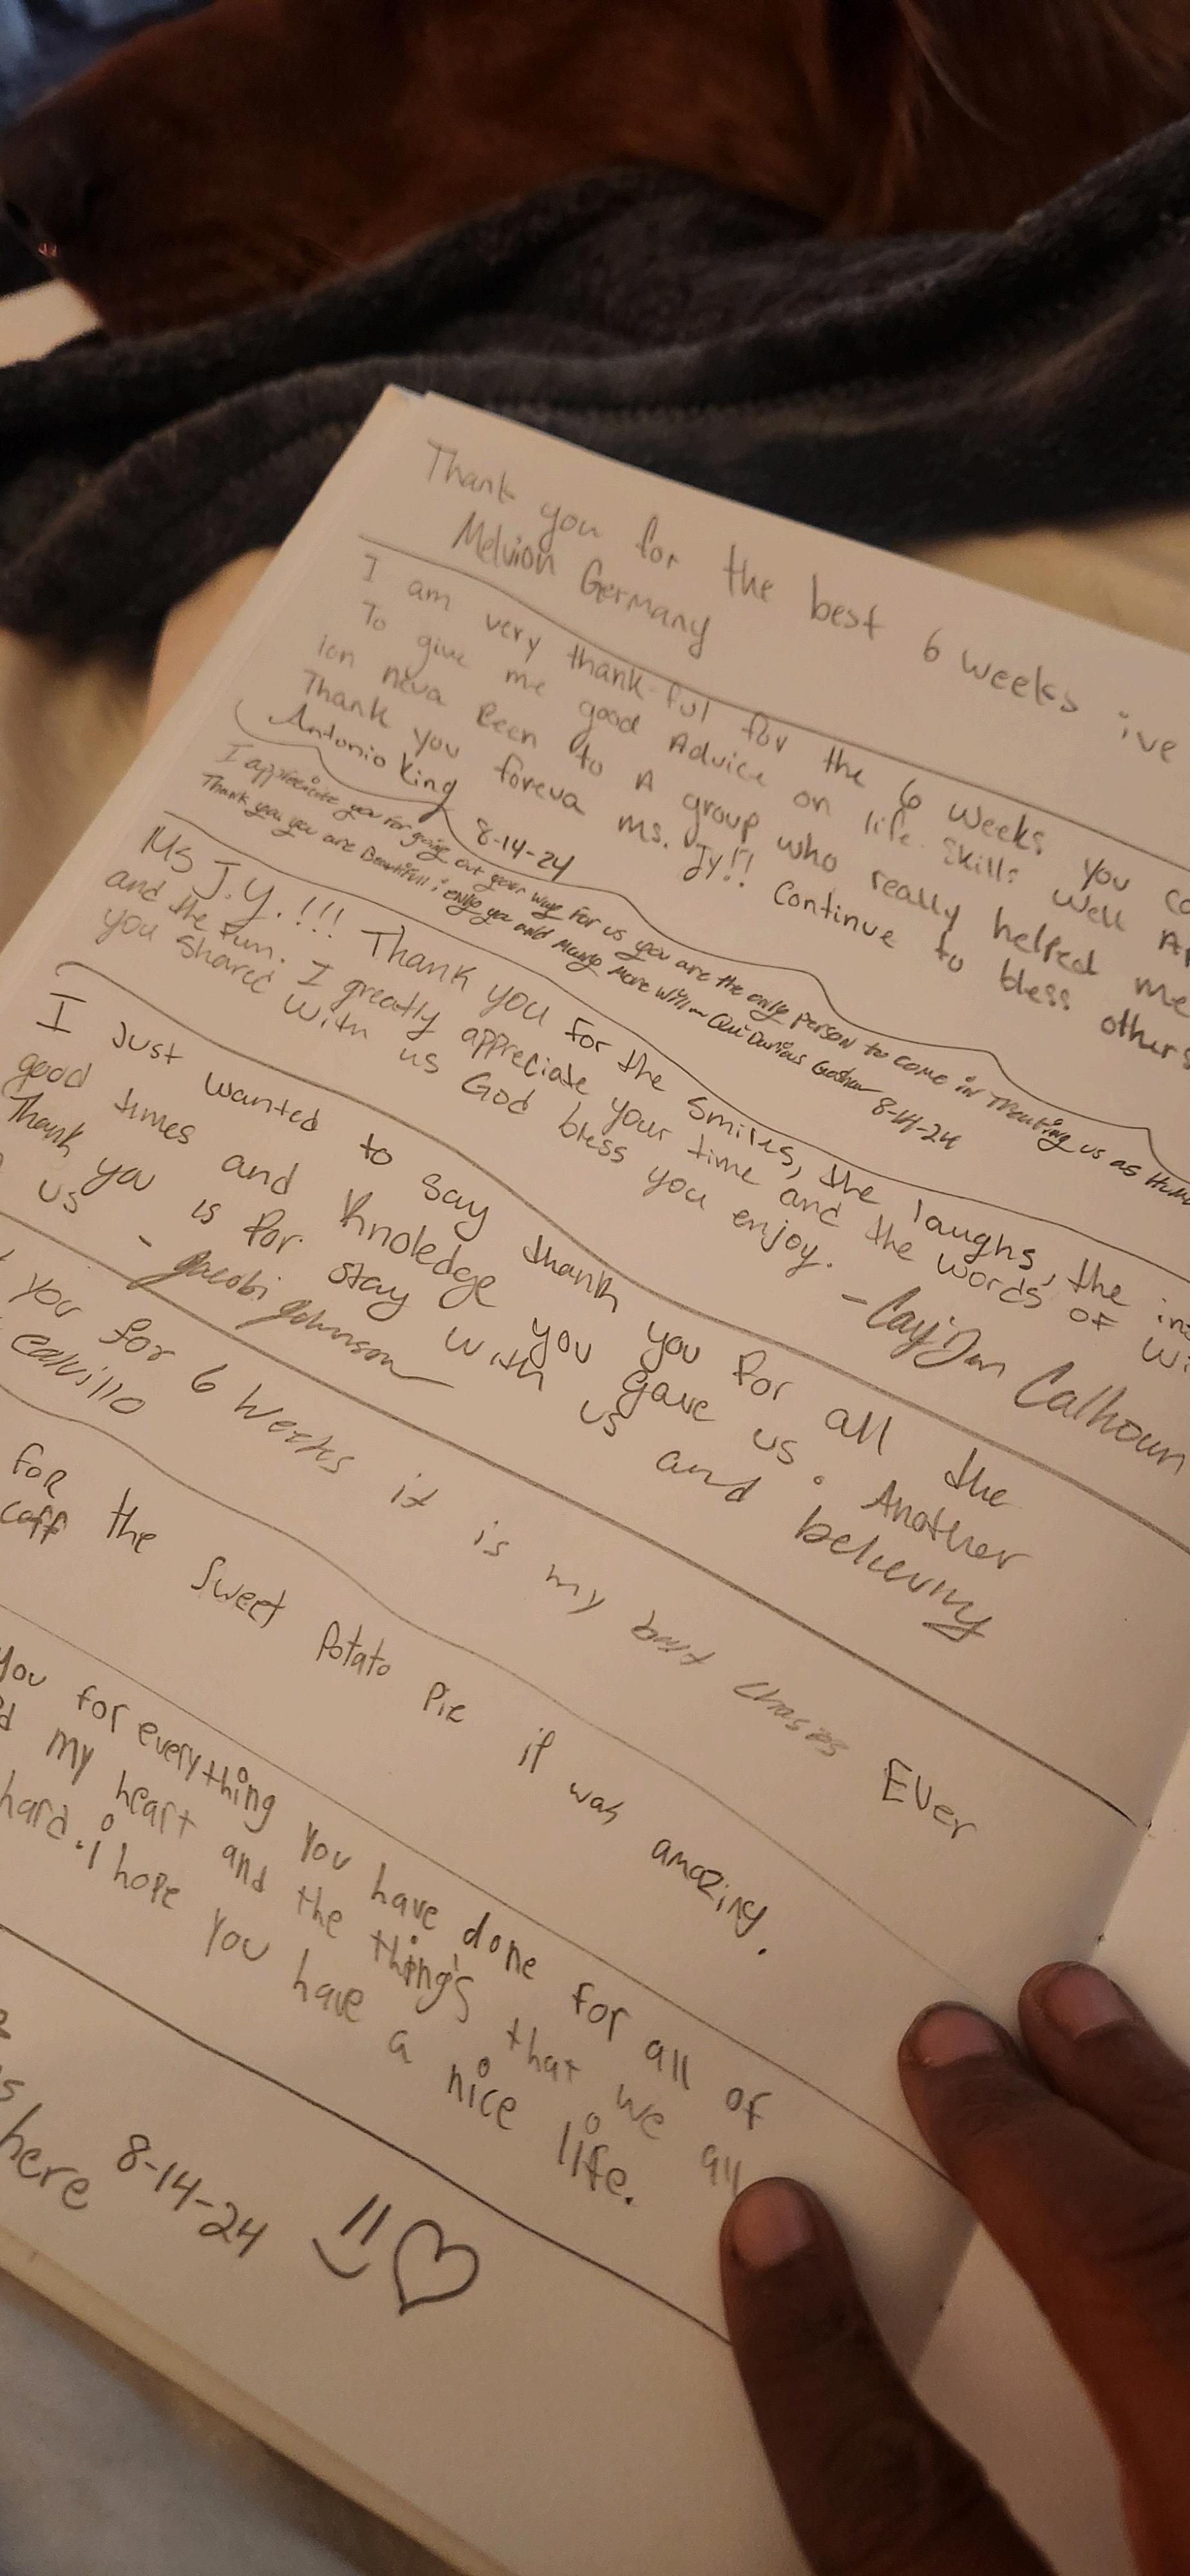 Thank you for the best 6 weeks i've
Melvion Germany
I am very thank-ful for the 6 weeks you
To give me good Advice on life skills well
Ion neva Been to A group who really helped me
Thank you foreva Ms. Jy!! Continue to bless others
Antonio King 8-14-24
I appreciate you for going out your way for us you are the only person to come in Treating us as
Thank you you are Beautifull i enjoy you and Many More will 8-14-24
Ms J.Y.!!! Thank you for the smiles, the laughs, the
and the fun. I greatly appreciate your time and the words of
you shared with us God bless you enjoy. - Cay'Jon Calhoun
I Just wanted to say thank you for all the
good times and Knoledge you gave us. Another
Thank you is for stay with us and believing
us - Jacobi Johnson
you for 6 weeks it is my best Ever
Calvillo
for the Sweet Potato Pie it was amazing.
you for everything you have done for all of
my heart and the thing's that we all
hard. i hope you have a nice life.
here 8-14-24